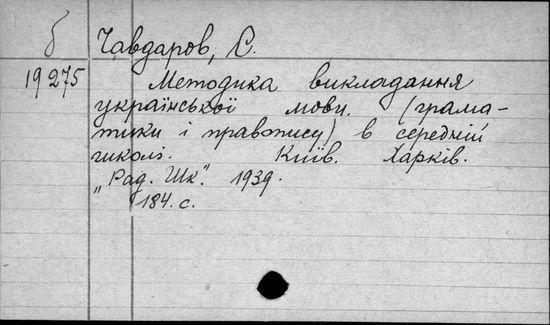 б Чавдаров, С.
19275 Методика викладання
української мови. (грама-
тики і правопису) в середній
школі. Київ. Харків.
"Рад. Шк". 1939.
184. с.